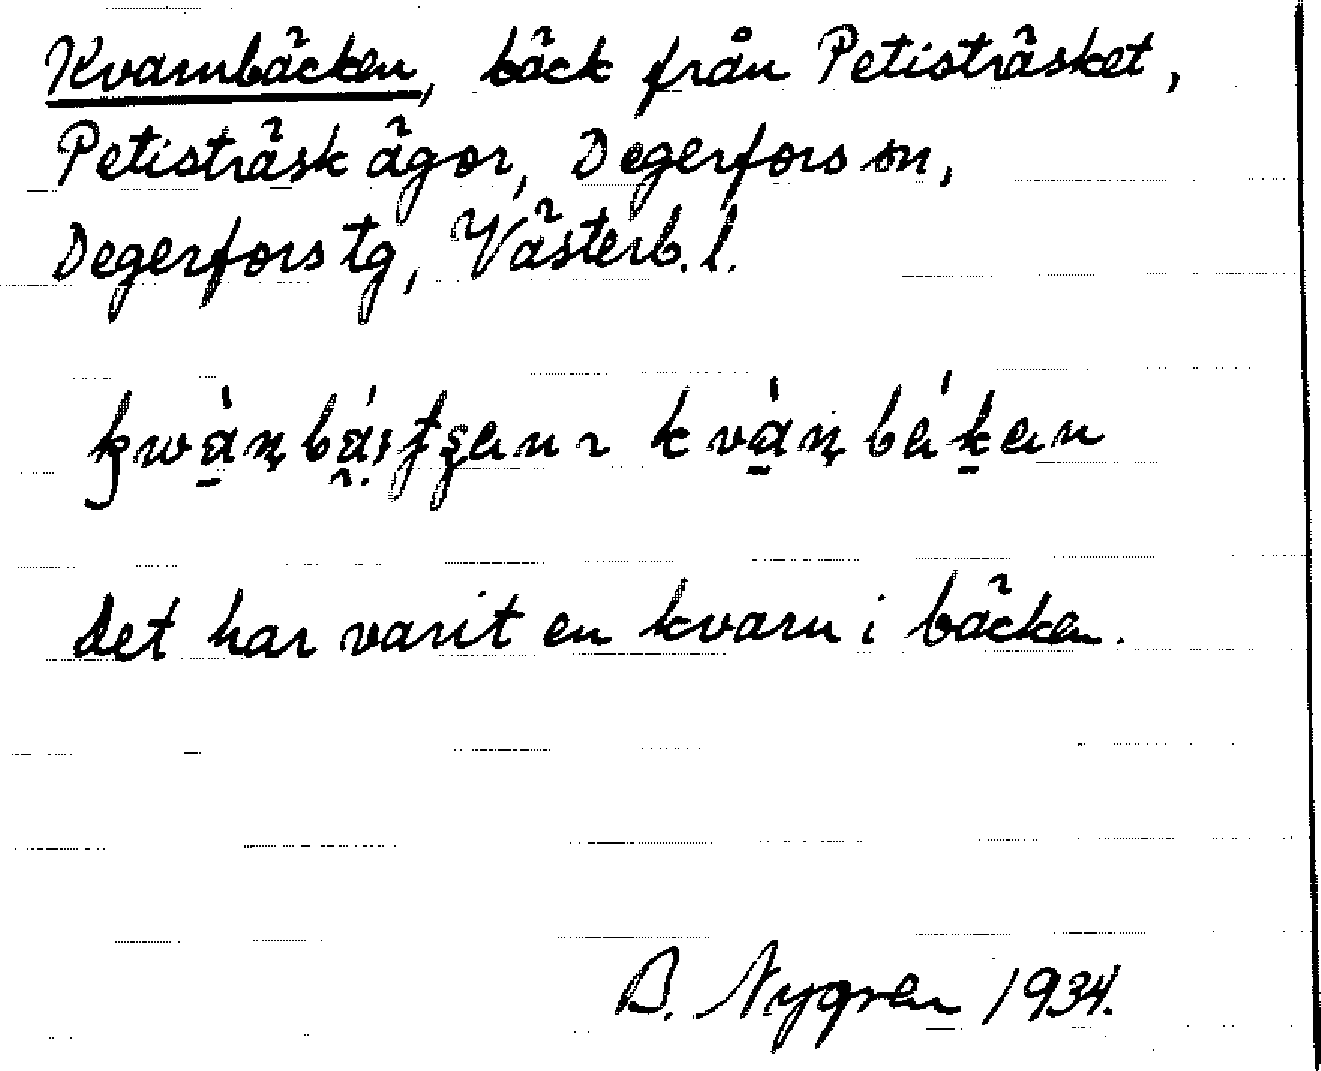 Kvarnbäcken, bäck från Petisträsket,
Petisträsk ägor, Degerfors sn,
Degerfors tg, Västerb. l.
det har varit en kvarn i bäcken.
B. Nygren 1934.